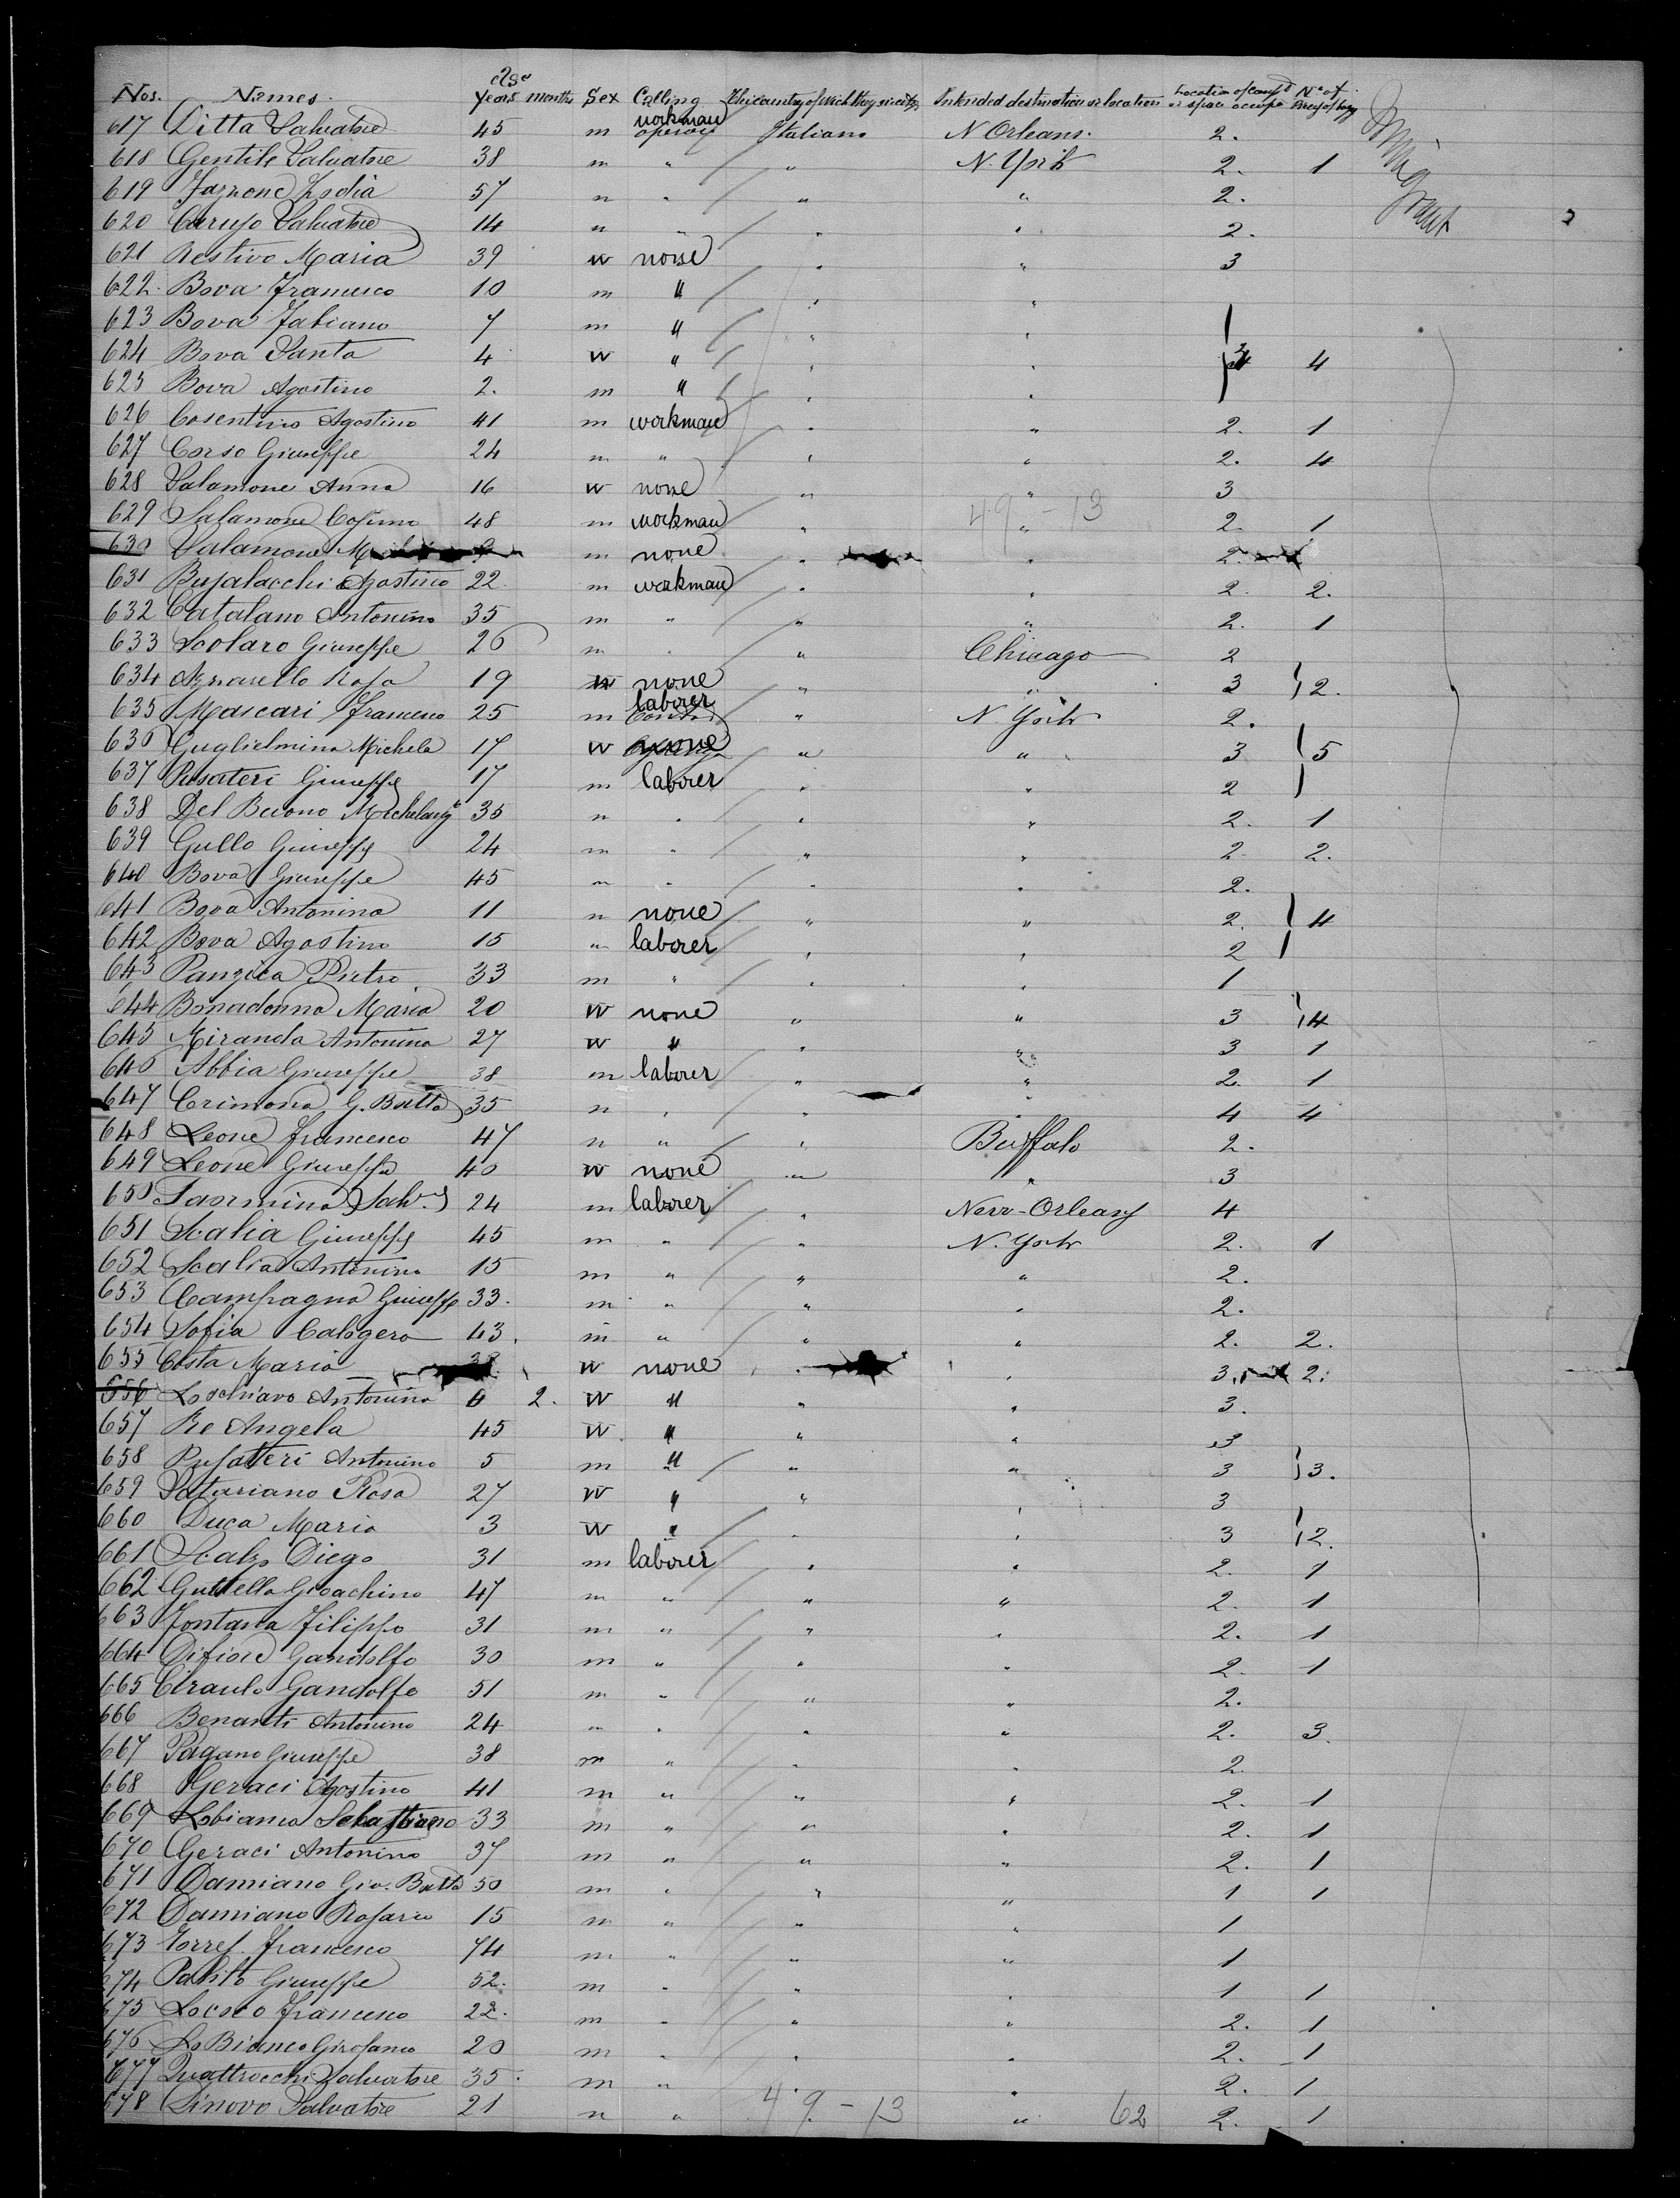 Nos. Names. Age years months Sex Calling The country of which they are citiz. Intended destination or location Location of comp't or space occup. N° of Pieces of bagg.
Emigrant
617 Ditta Salvatore 45 m workman Italiano N Orleans. 2.
618 Gentile Salvatore 38 m " " N. York 2. 1
619 57 m " " " 2.
620 Caruso Salvatore 14 m " " " 2.
621 Restivo Maria 39 w none " " 3
622 Bova Francesco 10 m " " "
623 Bova Fabiano 7 m " " "
624 Bova Santa 4 w " " " 4
625 Bova Agostino 2. m " " "
626 Cosentino Agostino 41 m workman " " 2. 1
627 Corso Giuseppe 24 m " " " 2. 4
628 Salamone Anna 16 w none " " 3
629 Salamone Cosimo 48 m workman " 49-13 " 2. 1
630 Salamone m none " " 2.
631 Busalacchi Agostino 22 m workman " " 2. 2.
632 Catalano Antonino 35 m " " " 2. 1
633 Scolaro Giuseppe 26 m " " Chicago 2
634 Rosa 19 w none " " 3 2.
635 Mascari Francesco 25 m laborer " N. York 2.
636 Guglielmina Michela 17 w none " " 3 5
637 Pusateri Giuseppe 17 m laborer " " 2
638 Del Buono Michelang° 35 m " " " 2. 1
639 Gullo Giuseppe 24 m " " " 2 2.
640 Bova Giuseppe 45 m " " " 2.
641 Bova Antonino 11 m none " " 2. 4
642 Bova Agostino 15 m laborer " " 2
643 Panzica Pietro 33 m " " " 1
644 Bonadonna Maria 20 w none " " 3 4
645 Miranda Antonina 27 w " " " 3 1
646 Abbia Giuseppe 38 m laborer " " 2. 1
647 Crimona G. Batta 35 m " " " 4 4
648 Leone Francesco 47 m " " Buffalo 2.
649 Leone Giuseppa 40 w none " " 3
650 Taormina Salv. 24 m laborer " New-Orleans 4
651 Scalia Giuseppe 45 m " " N. York 2. 1
652 Scalia Antonino 15 m " " " 2.
653 Campagna Giuseppe 33. m " " " 2.
654 Sofia Calogero 43. m " " " 2. 2.
655 Costa Maria w none " " 3. 2.
656 Loschiavo Antonina 2. w " " " 3.
657 Re Angela 45 w " " " 3
658 Pusateri Antonino 5 m " " " 3 3.
659 Satariano Rosa 27 w " " " 3
660 Duca Maria 3 w " " " 3 2.
661 Scalzo Diego 31 m laborer " " 2. 1
662 Guttella Gioachino 47 m " " " 2. 1
663 Fontana Filippo 31 m " " " 2. 1
664 Difiore Gandolfo 30 m " " " 2. 1
665 Ciraulo Gandolfo 51 m " " " 2.
666 Benanti Antonino 24 m " " " 2. 3.
667 Pagano Giuseppe 38 m " " " 2.
668 Geraci Agostino 41 m " " " 2. 1
669 Lobianco Sebastiano 33 m " " " 2. 1
670 Geraci Antonino 37 m " " " 2. 1
671 Damiano Gio. Batta 50 m " " " 1 1
672 Damiano Rosario 15 m " " " 1
673 Torres Francesco 74 m " " " 1
674 Giuseppe 52. m " " " 1 1
675 Lococo Francesco 22. m " " " 2. 1
676 Lo Bianco 20 m " " " 2. 1
677 Quattrocchi Salvatore 35. m " " " 2. 1
678 Salvatore 21 m " 49-13 " 62 2. 1